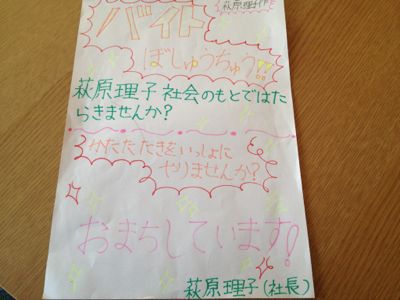 萩原理子作
バイト
ぼしゅうちゅう!!
萩原理子社会のもとではた
らきませんか?
かたたたきをいっしょに
やりませんか?
おまちしています!
萩原理子(社長)